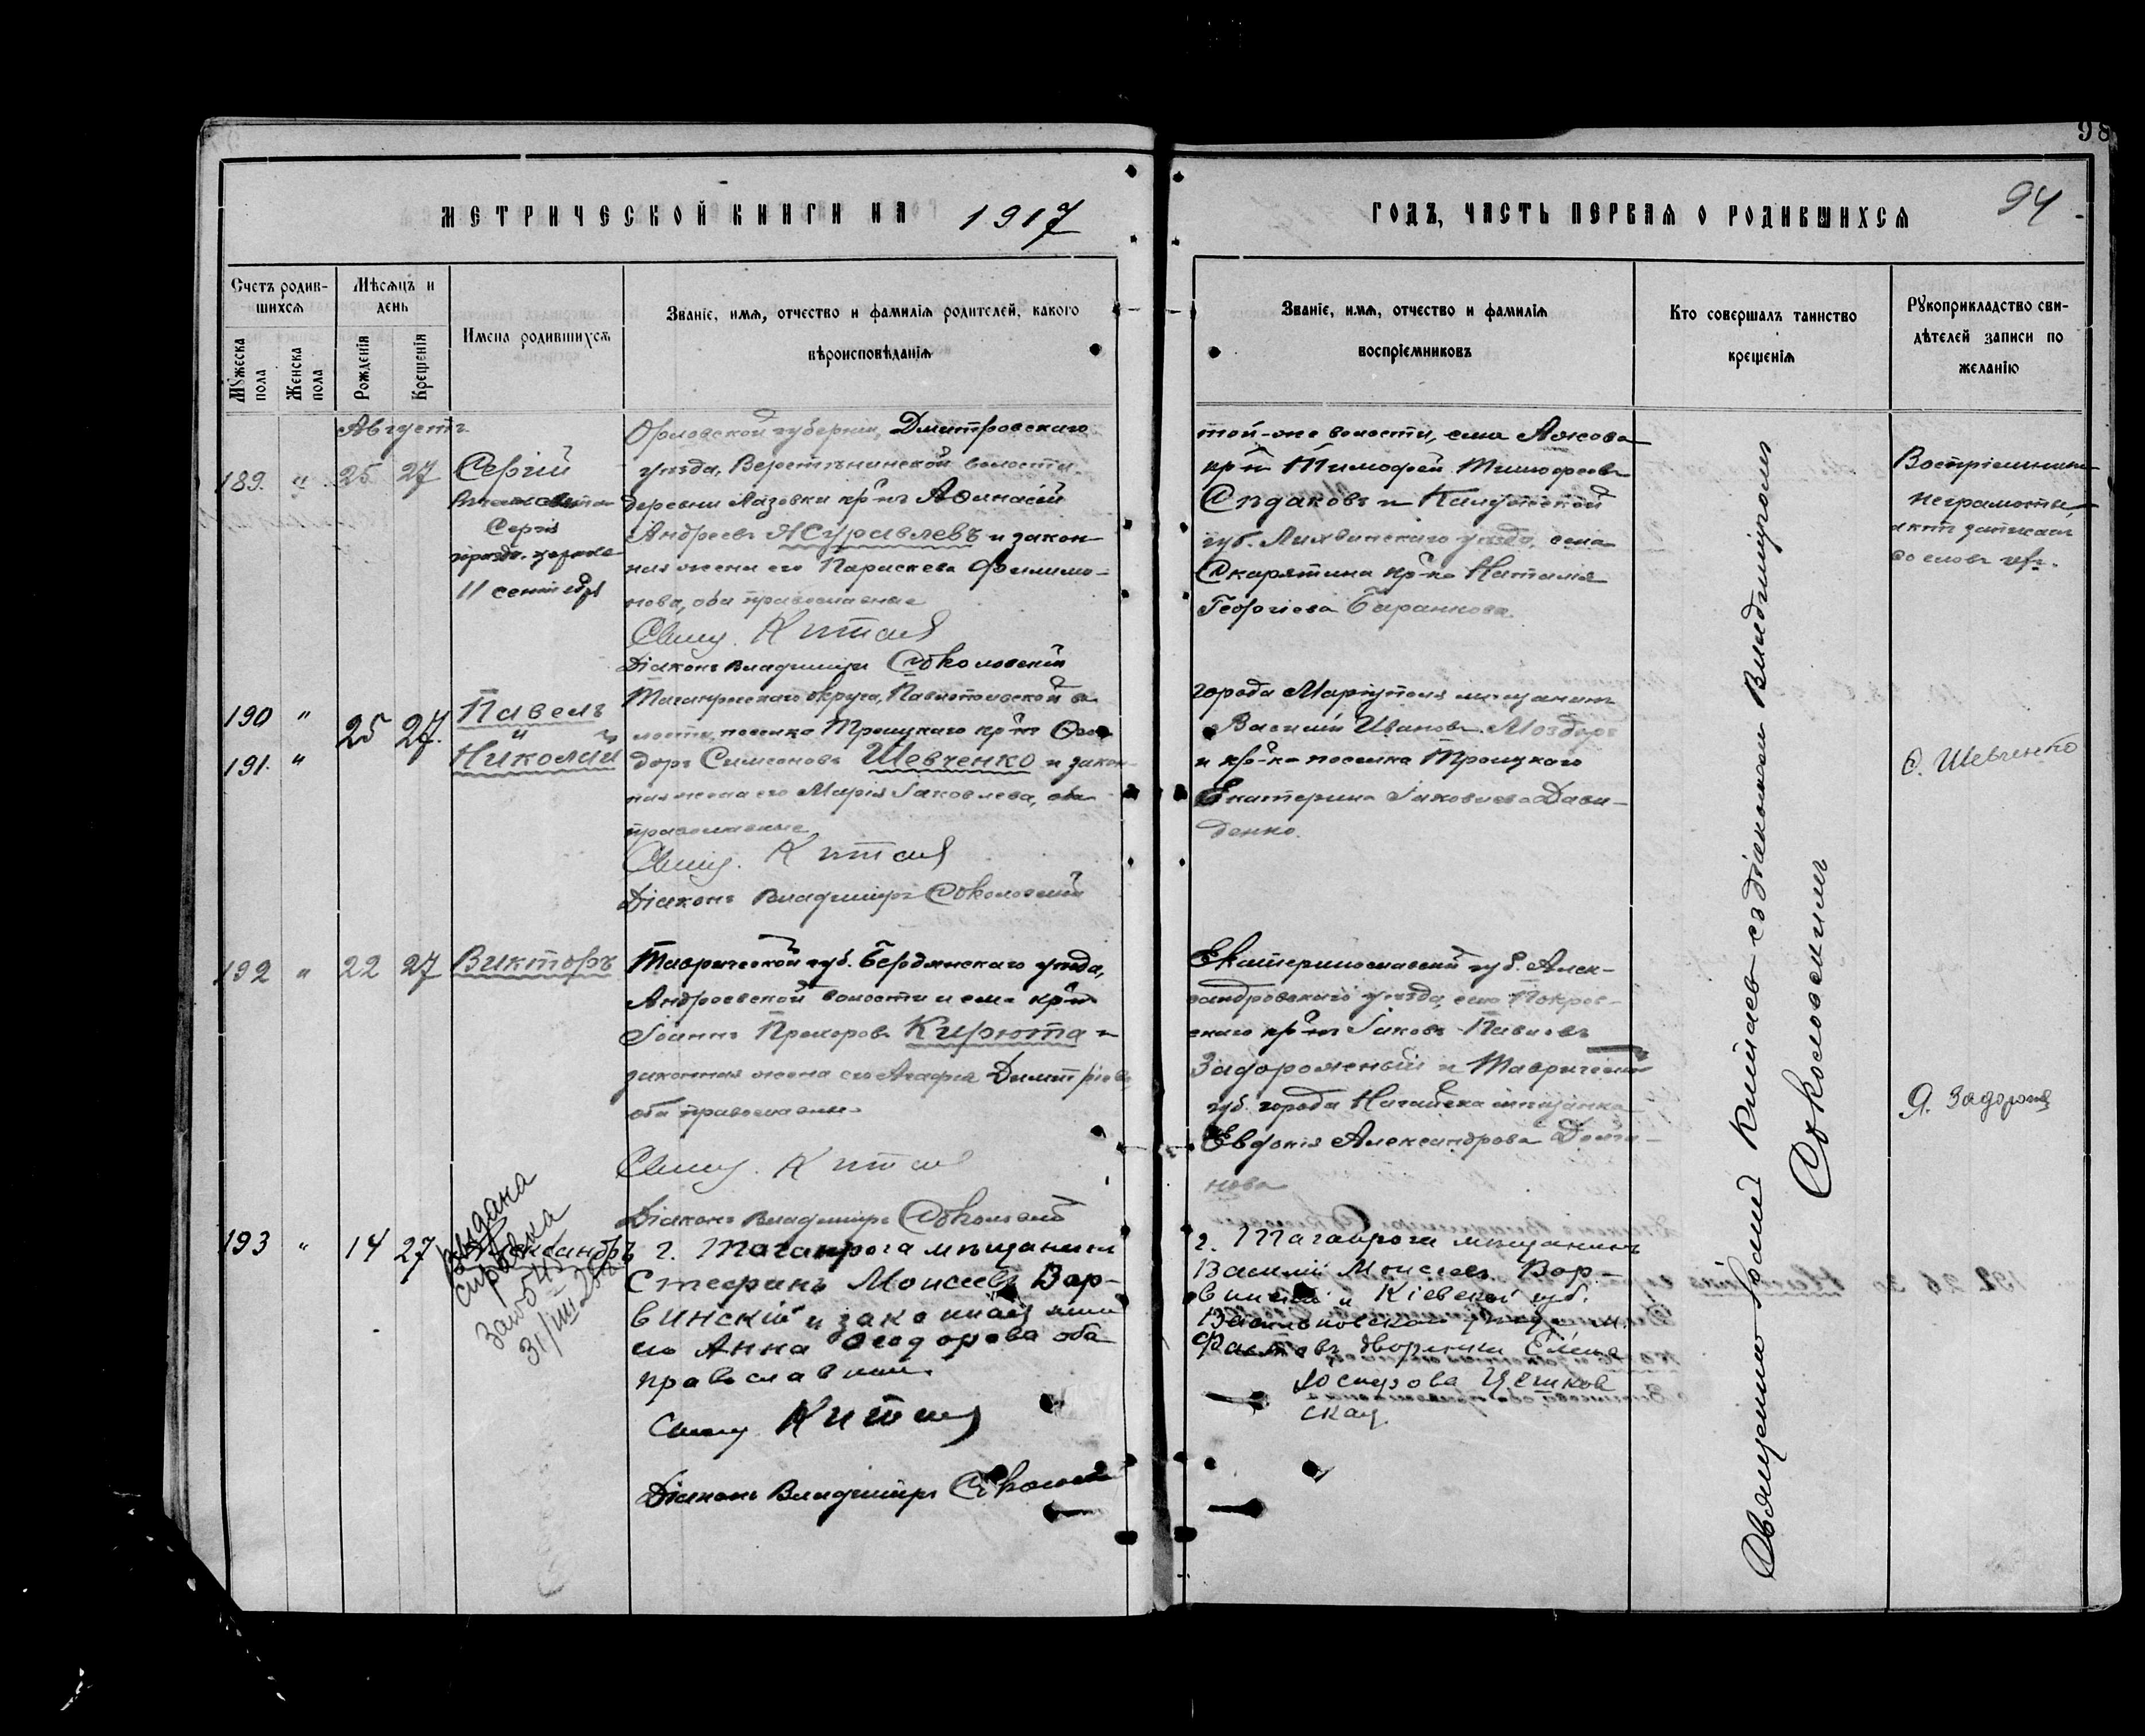 98
94
МЕТРИЧЕСКОЙ КНИГИ НА 1917
ГОДЪ, ЧАСТЬ ПЕРВАЯ О РОДИВШИХСЯ
Счетъ родив-
шихся
Мужеска пола
Женска пола
Мѣсяцъ и
день
Рожденія
Крещенія
Имена родившихся
Званіе, имя, отчество и фамилія родителей, какого
вѣроисповѣданія
Званіе, имя, отчество и фамилія
воспріемниковъ
Кто совершалъ таинство
крещенія
Рукоприкладство сви-
дѣтелей записи по
желанію
Августъ
189. " 25 27 Сергій
Сергія
11 сентября
Орловской губерніи, Дмитровскаго
уѣзда, Веретенинской волости
деревни Лазовки кр-нъ Аѳанасій
Андреевъ Журавлевъ и закон-
ная жена его Параскева Филимо-
нова, оба православные
Свящ. Китаев
Діаконъ Владиміръ Соколовскій
той-же волости, села
кр-нъ Тимофей Тимофеевъ
Сѣдаковъ и Калужской
губ. Лихвинскаго уѣзда, села
Скарятина кр-ка Наталія
Георгіева Баранкова.
Воспріемники
неграмотны,
актъ записанъ
со словъ ихъ.
190 " Павелъ
и
25 27.
191. " Николай
Таганрогскаго округа, Павлопольской во-
лости, поселка Троицкаго кр-нъ Ѳео-
доръ Симеоновъ Шевченко и закон-
ная жена его Марія Іаковлева, оба
православные
Свящ. Китаев
Діаконъ Владиміръ Соколовскій
города Маріуполя мѣщанинъ
Василій Ивановъ Моздоръ
и кр-ка поселка Троицкаго
Екатерина Іаковлева Дави-
денко.
Ѳ. Шевченко
192 " 22 27 Викторъ
Таврической губ. Бердянскаго уѣзда,
Андреевской волости и села кр-нъ
Іоаннъ Прохоровъ Кирюта и
законная жена его Агафія Димитріева
оба православные
Свящ. Китаев
Діаконъ Владиміръ Соколовскій
Екатеринославской губ. Алек-
сандровскаго уѣзда, села Покров-
скаго кр-нъ Іаковъ Павловъ
Задорожный и Таврической
губ. города Ногайска мѣщанка
Евдокія Александрова
нова
Я. Задорожный
193 " 14 27 Александръ
выдана
справка
31/III
г. Таганрога мѣщанинъ
Стефанъ Моисеевъ Вар-
винскій и законная жена
его Анна Ѳеодорова оба
православные
Свящ Китаев
Діаконъ Владиміръ Соколовскій
г. Таганрога мѣщанинъ
Василій Моисеевъ Вар-
винскій и Кіевской губ.
Васильковскаго уѣзда м.
Фастовъ дворянка Елена
ская
Священникъ Іоаннъ Китаевъ съ діакономъ Владиміромъ
Соколовскимъ